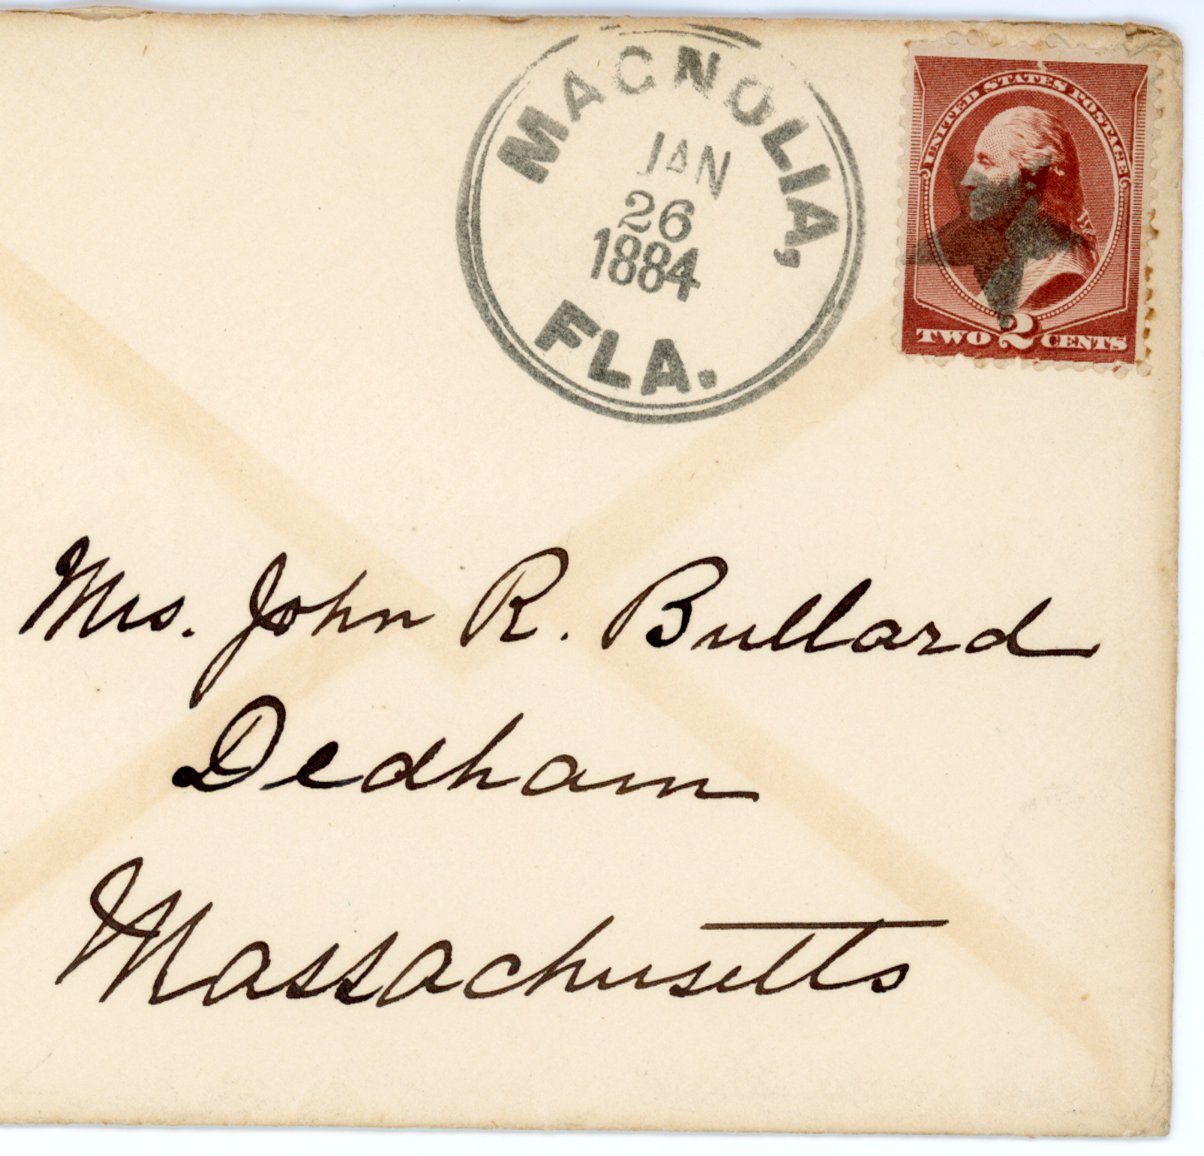 MAGNOLIA,
JAN
26
1884
FLA.
UNITED STATES POSTAGE
TWO 2 CENTS
Mrs. John R. Bullard
Dedham
Massachusetts